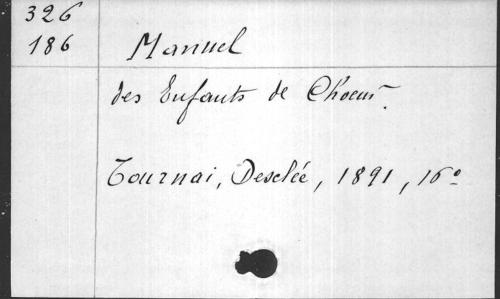 326
186 Manuel
des Enfants de Choeur.
Tournai, Desclée, 1891, 16°